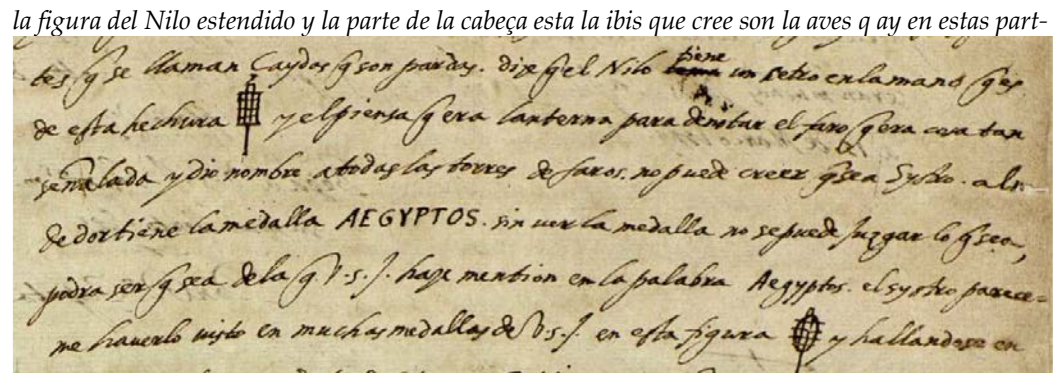 la figura del Nilo estendido y la parte de la cabeça esta la ibis que cree son la aves q ay en estas part-
tes q se llaman Caydas q son pardas. dize q el Nilo tiene un setro en la mano q es
de esta hechura y el piensa q era lanterna para denotar el faro q era cosa tan
señalada y dio nombre a todas las torres de faros. no puede creer q sea Systro. alre
dedor tiene la medalla AEGYPTOS. sin ver la medalla no se puede juzgar lo q sea,
podra ser q sea de la q V.S.J. haze mention en la palabra Aegyptos. el systro parece-
me haverlo visto en muchas medallas de V.S.J. en esta figura y hallandose en